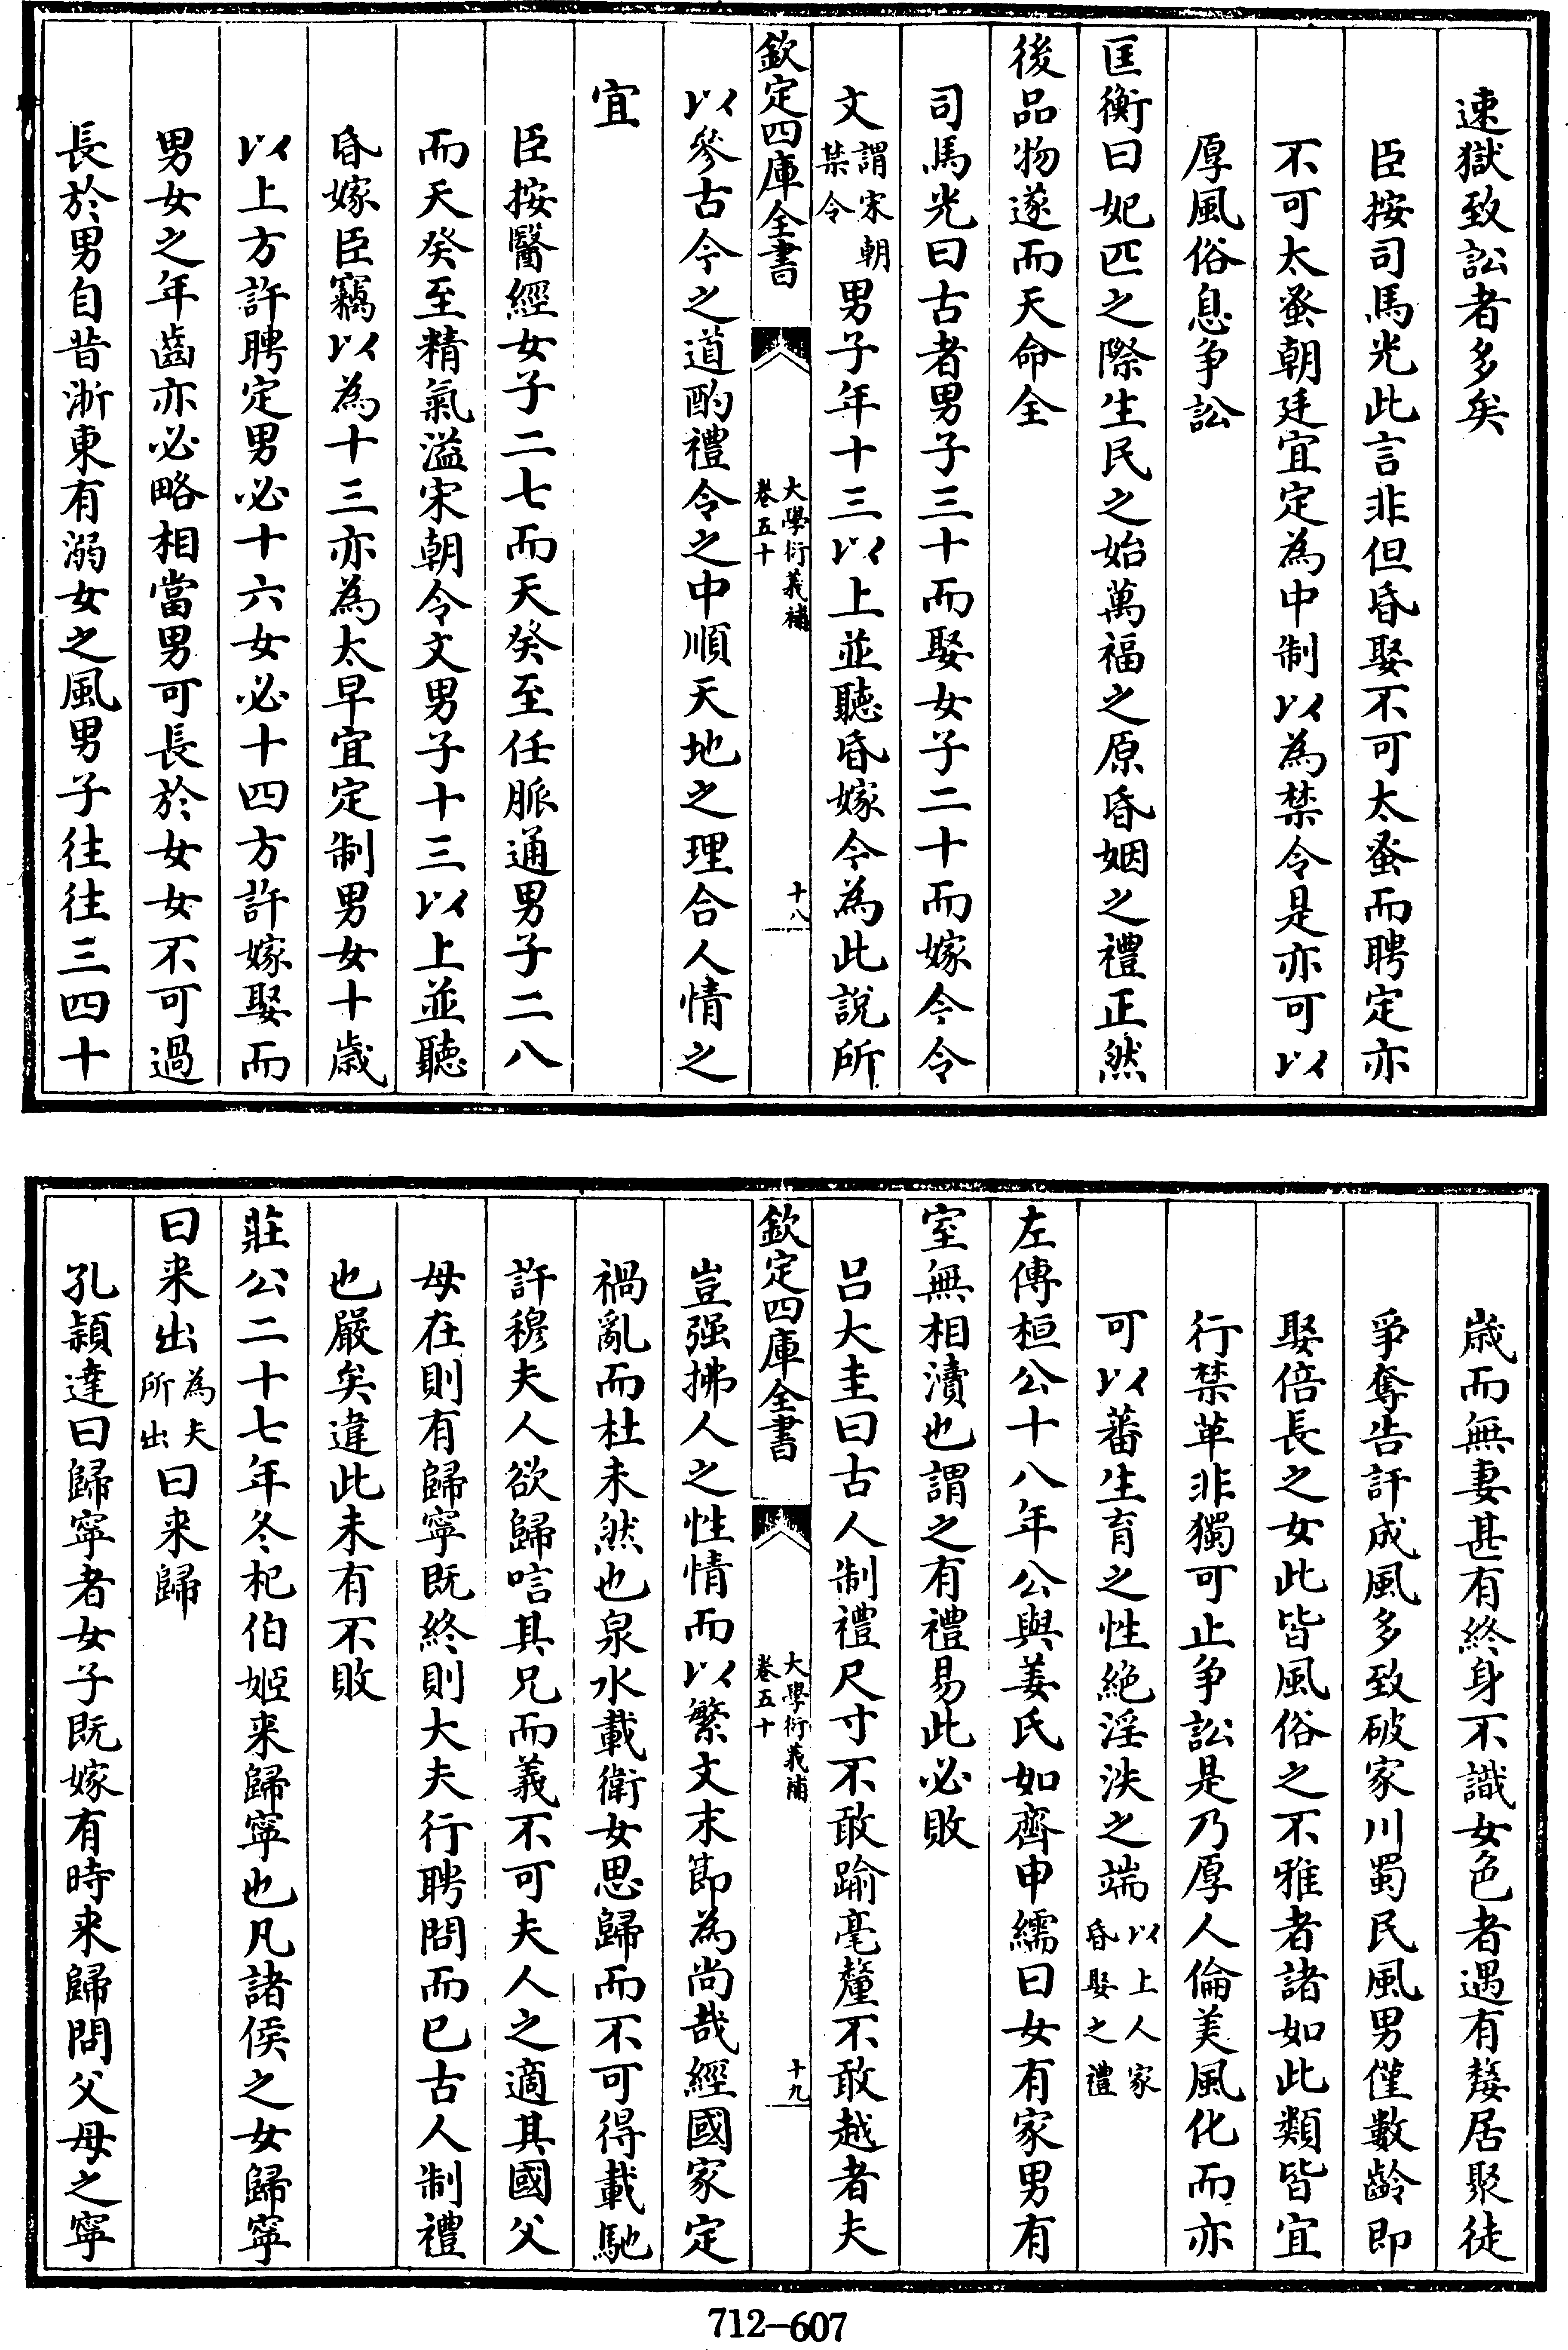 速獄致訟者多矣
臣按司馬光此言非但昏娶不可太蚤而聘定亦
不可太蚤朝廷宜定為中制以為禁令是亦可以
厚風俗息争訟
匡衡曰妃匹之際生民之始萬福之原昏姻之禮正然
後品物遂而天命全
司馬光曰古者男子三十而娶女子二十而嫁今令
文謂宋朝禁令男子年十三以上並聽昏嫁今為此說所
欽定四庫全書
大學衍義補
卷五十
十八
以參古今之道酌禮令之中順天地之理合人情之
宜
臣按醫經女子二七而天癸至任脈通男子二八
而天癸至精氣溢宋朝令文男子十三以上並聽
昏嫁臣竊以為十三亦為太早宜定制男女十歲
以上方許聘定男必十六女必十四方許嫁娶而
男女之年齒亦必略相當男可長於女女不可過
長於男自昔淅東有溺女之風男子往往三四十
歲而無妻甚有終身不識女色者遇有嫠居聚徒
爭奪告訐成風多致破家川蜀民風男僅數齡即
娶倍長之女此皆風俗之不雅者諸如此類皆宜
行禁革非獨可止争訟是乃厚人倫美風化而亦
可以蕃生育之性絶淫泆之端以上人家昏娶之禮
左傳桓公十八年公與姜氏如齊申繻曰女有家男有
室無相瀆也謂之有禮易此必敗
吕大圭曰古人制禮尺寸不敢踰毫釐不敢越者夫
欽定四庫全書
大學衍義補
卷五十
十九
豈强拂人之性情而以繁文末節為尚哉經國家定
禍亂而杜未然也泉水載衛女思歸而不可得載馳
許穆夫人欲歸唁其兄而義不可夫人之適其國父
母在則有歸寧既終則大夫行聘問而已古人制禮
也嚴矣違此未有不敗
莊公二十七年冬杞伯姬来歸寧也凡諸侯之女歸寧
曰来出為夫所出曰来歸
孔頴達曰歸寧者女子既嫁有時来歸問父母之寧
712—607